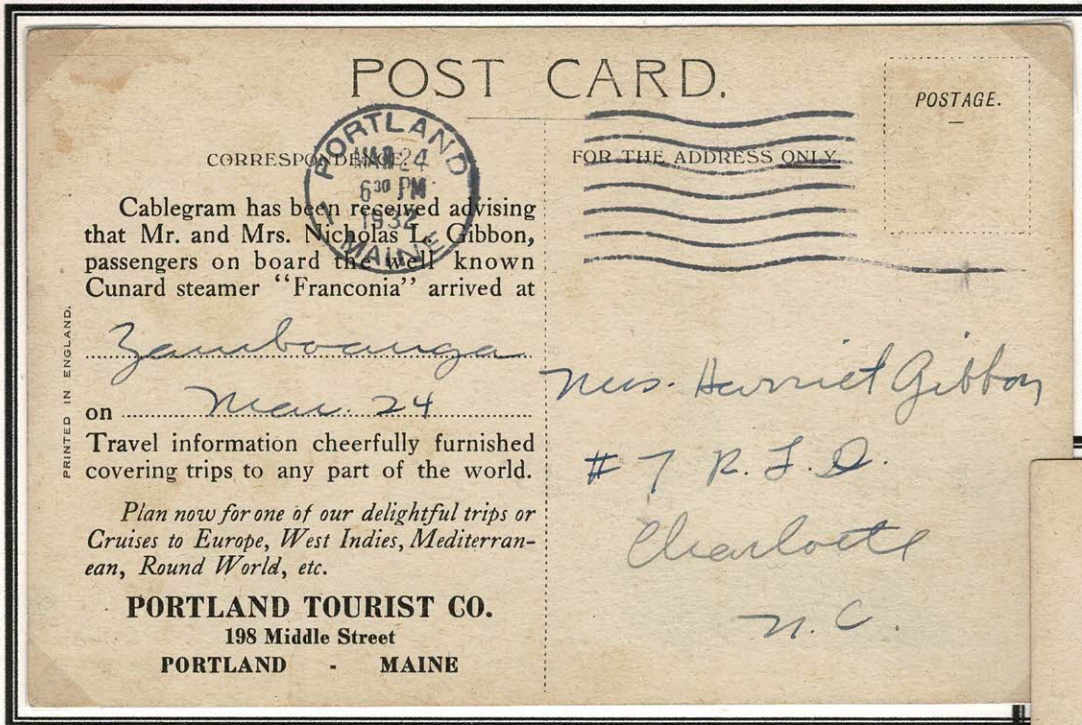 POST CARD.
POSTAGE.
PORTLAND
MAR 24
6 30 PM
1932
1
MAINE
CORRESPONDENCE
FOR THE ADDRESS ONLY.
Cablegram has been received advising
that Mr. and Mrs. Nicholas L. Gibbon,
passengers on board the well known
Cunard steamer "Franconia" arrived at
Zamboanga
on Mar. 24
Travel information cheerfully furnished
covering trips to any part of the world.
Plan now for one of our delightful trips or
Cruises to Europe, West Indies, Mediterran-
ean, Round World, etc.
PORTLAND TOURIST CO.
198 Middle Street
PORTLAND - MAINE
PRINTED IN ENGLAND.
Mrs. Harriet Gibbon
#7 R.F.D.
Charlotte
N.C.